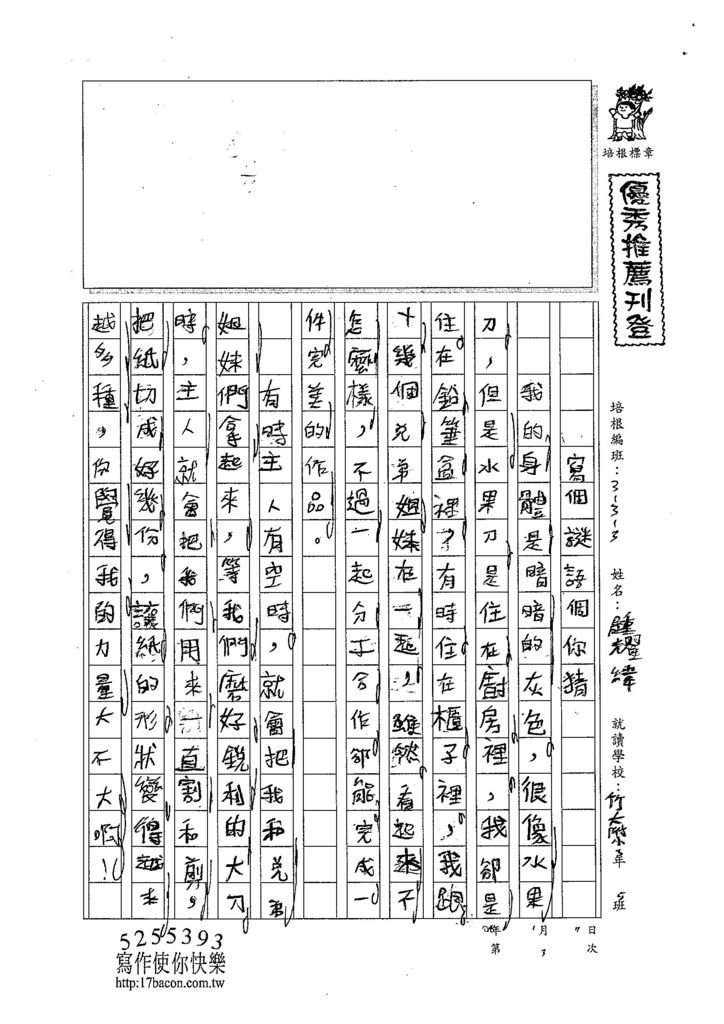 培根標章
優秀推薦刊登
培根編班：313-3
姓名：鍾耀緯
就讀學校：竹大附
年
班
年1月7日
第3次
寫個謎語個你猜
我的身體是暗暗的灰色，很像水果
刀，但是水果刀是住在廚房裡，我卻是
住在鉛筆盒裡，有時住在櫃子裡，我跟
十幾個兄弟姐妹在一起，雖然看起來不
怎麼樣，不過一起分工合作卻能完成一
件完美的作品。
有時主人有空時，就會把我和兄弟
姐妹們拿起來，等我們磨好銳利的大刀
時，主人就會把我們用來一直割和剪，
把紙切成好幾份，讓紙的形狀變得越來
越多種，你覺得我的力量大不大啊！
5255393
寫作使你快樂
http:17bacon.com.tw